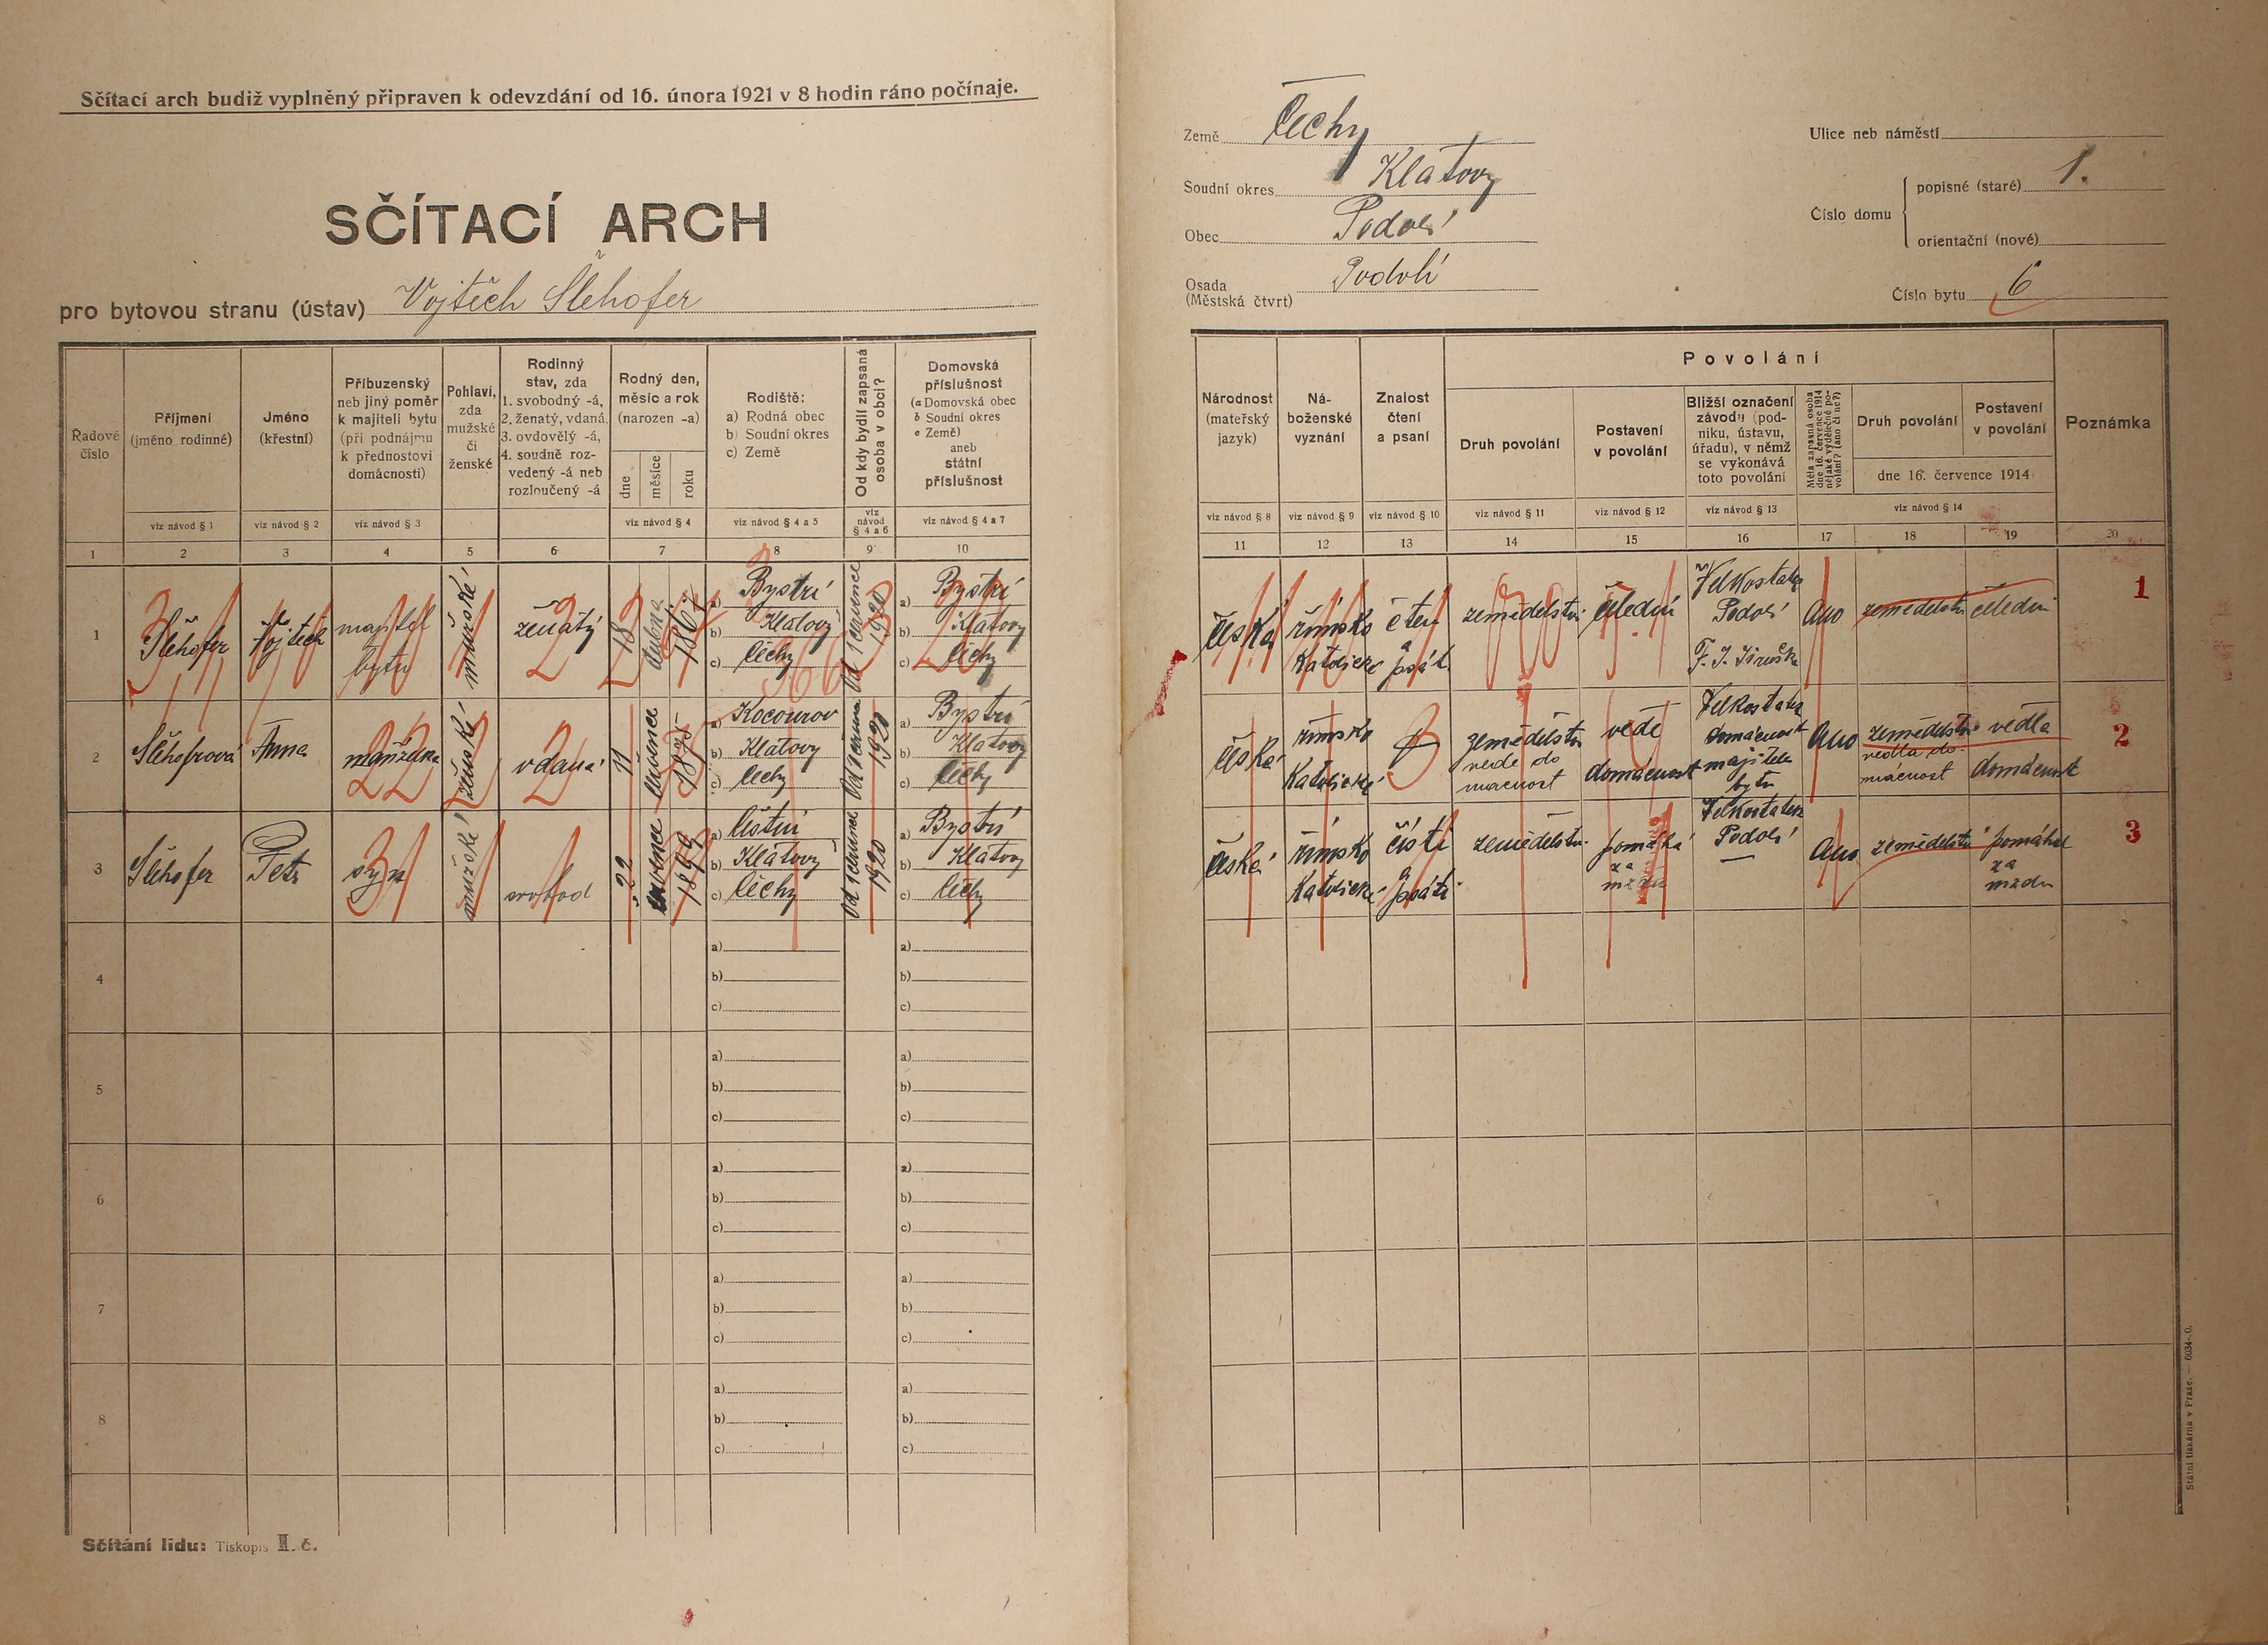 Sčítací arch budiž vyplněný připraven k odevzdání od 16. února 1921 v 8 hodin ráno počínaje.
SČÍTACÍ ARCH
pro bytovou stranu (ústav) Vojtěch Šlehofer
Země Čechy
Soudní okres Klatovy
Obec Podolí
Osada Podolí
(Městská čtvrť)
Ulice neb náměstí
Číslo domu
popisné (staré) 1.
orientační (nové)
Číslo bytu 6
Řadové číslo
Příjmení (jméno rodinné)
Jméno (křestní)
Příbuzenský neb jiný poměr k majiteli bytu (při podnájmu k přednostovi domácnosti)
Pohlaví, zda mužské či ženské
Rodinný stav, zda 1. svobodný -á, 2. ženatý, vdaná, 3. ovdovělý -á, 4. soudně rozvedený -á neb rozloučený -á
Rodný den, měsíc a rok (narozen -a)
dne
měsíce
roku
Rodiště:
a) Rodná obec
b) Soudní okres
c) Země
Od kdy bydlí zapsaná osoba v obci?
Domovská příslušnost
(a Domovská obec
b Soudní okres
c Země)
aneb
státní příslušnost
viz návod § 1
viz návod § 2
viz návod § 3
viz návod § 4
viz návod § 4 a 5
viz návod § 4 a 6
viz návod § 4 a 7
1 2 3 4 5 6 7 8 9 10
Národnost (mateřský jazyk)
Náboženské vyznání
Znalost čtení a psaní
Povolání
Druh povolání
Postavení v povolání
Bližší označení závodu (podniku, ústavu, úřadu), v němž se vykonává toto povolání
Měla zapsaná osoba dne 16. července 1914 nějaké výdělečné povolání? (ano či ne?)
Druh povolání
Postavení v povolání
dne 16. července 1914
Poznámka
viz návod § 8
viz návod § 9
viz návod § 10
viz návod § 11
viz návod § 12
viz návod § 13
viz návod § 14
11 12 13 14 15 16 17 18 19 20
1 Šlehofer Vojtěch majitel bytu mužské ženatý 18 dubna 1867
a) Bystrí
b) Klatovy
c) Čechy
Od 1 července 1920
a) Bystrí
b) Klatovy
c) Čechy
Česká římsko katolické psát zemědělství čelední
Velkostatek Podolí
Ano zemědělství čelední
1
2 Šlehofrová Anna manželka ženské vdaná 11 1875
a) Kocourov
b) Klatovy
c) Čechy
1920
a) Bystrí
b) Klatovy
c) Čechy
Česká římsko katolické zemědělství vede domácnost
vede domácnost
Velkostatek domácnost majitele bytu
Ano zemědělství vedla domácnost
vedla domácnost
2
3 Šlehofer Petr syn mužské svobod 22 1899
a)
b) Klatovy
c) Čechy
1920
a) Bystrí
b) Klatovy
c) Čechy
Česká římsko katolické čísti a psáti zemědělství pomáhá za mzdu
Velkostatek Podolí
Ano zemědělství pomáhal za mzdu
3
4
a)
b)
c)
a)
b)
c)
5
a)
b)
c)
a)
b)
c)
6
a)
b)
c)
a)
b)
c)
7
a)
b)
c)
a)
b)
c)
8
a)
b)
c)
a)
b)
c)
Sčítání lidu: Tiskopis II. č.
Státní tiskárna v Praze. — 6034-0.